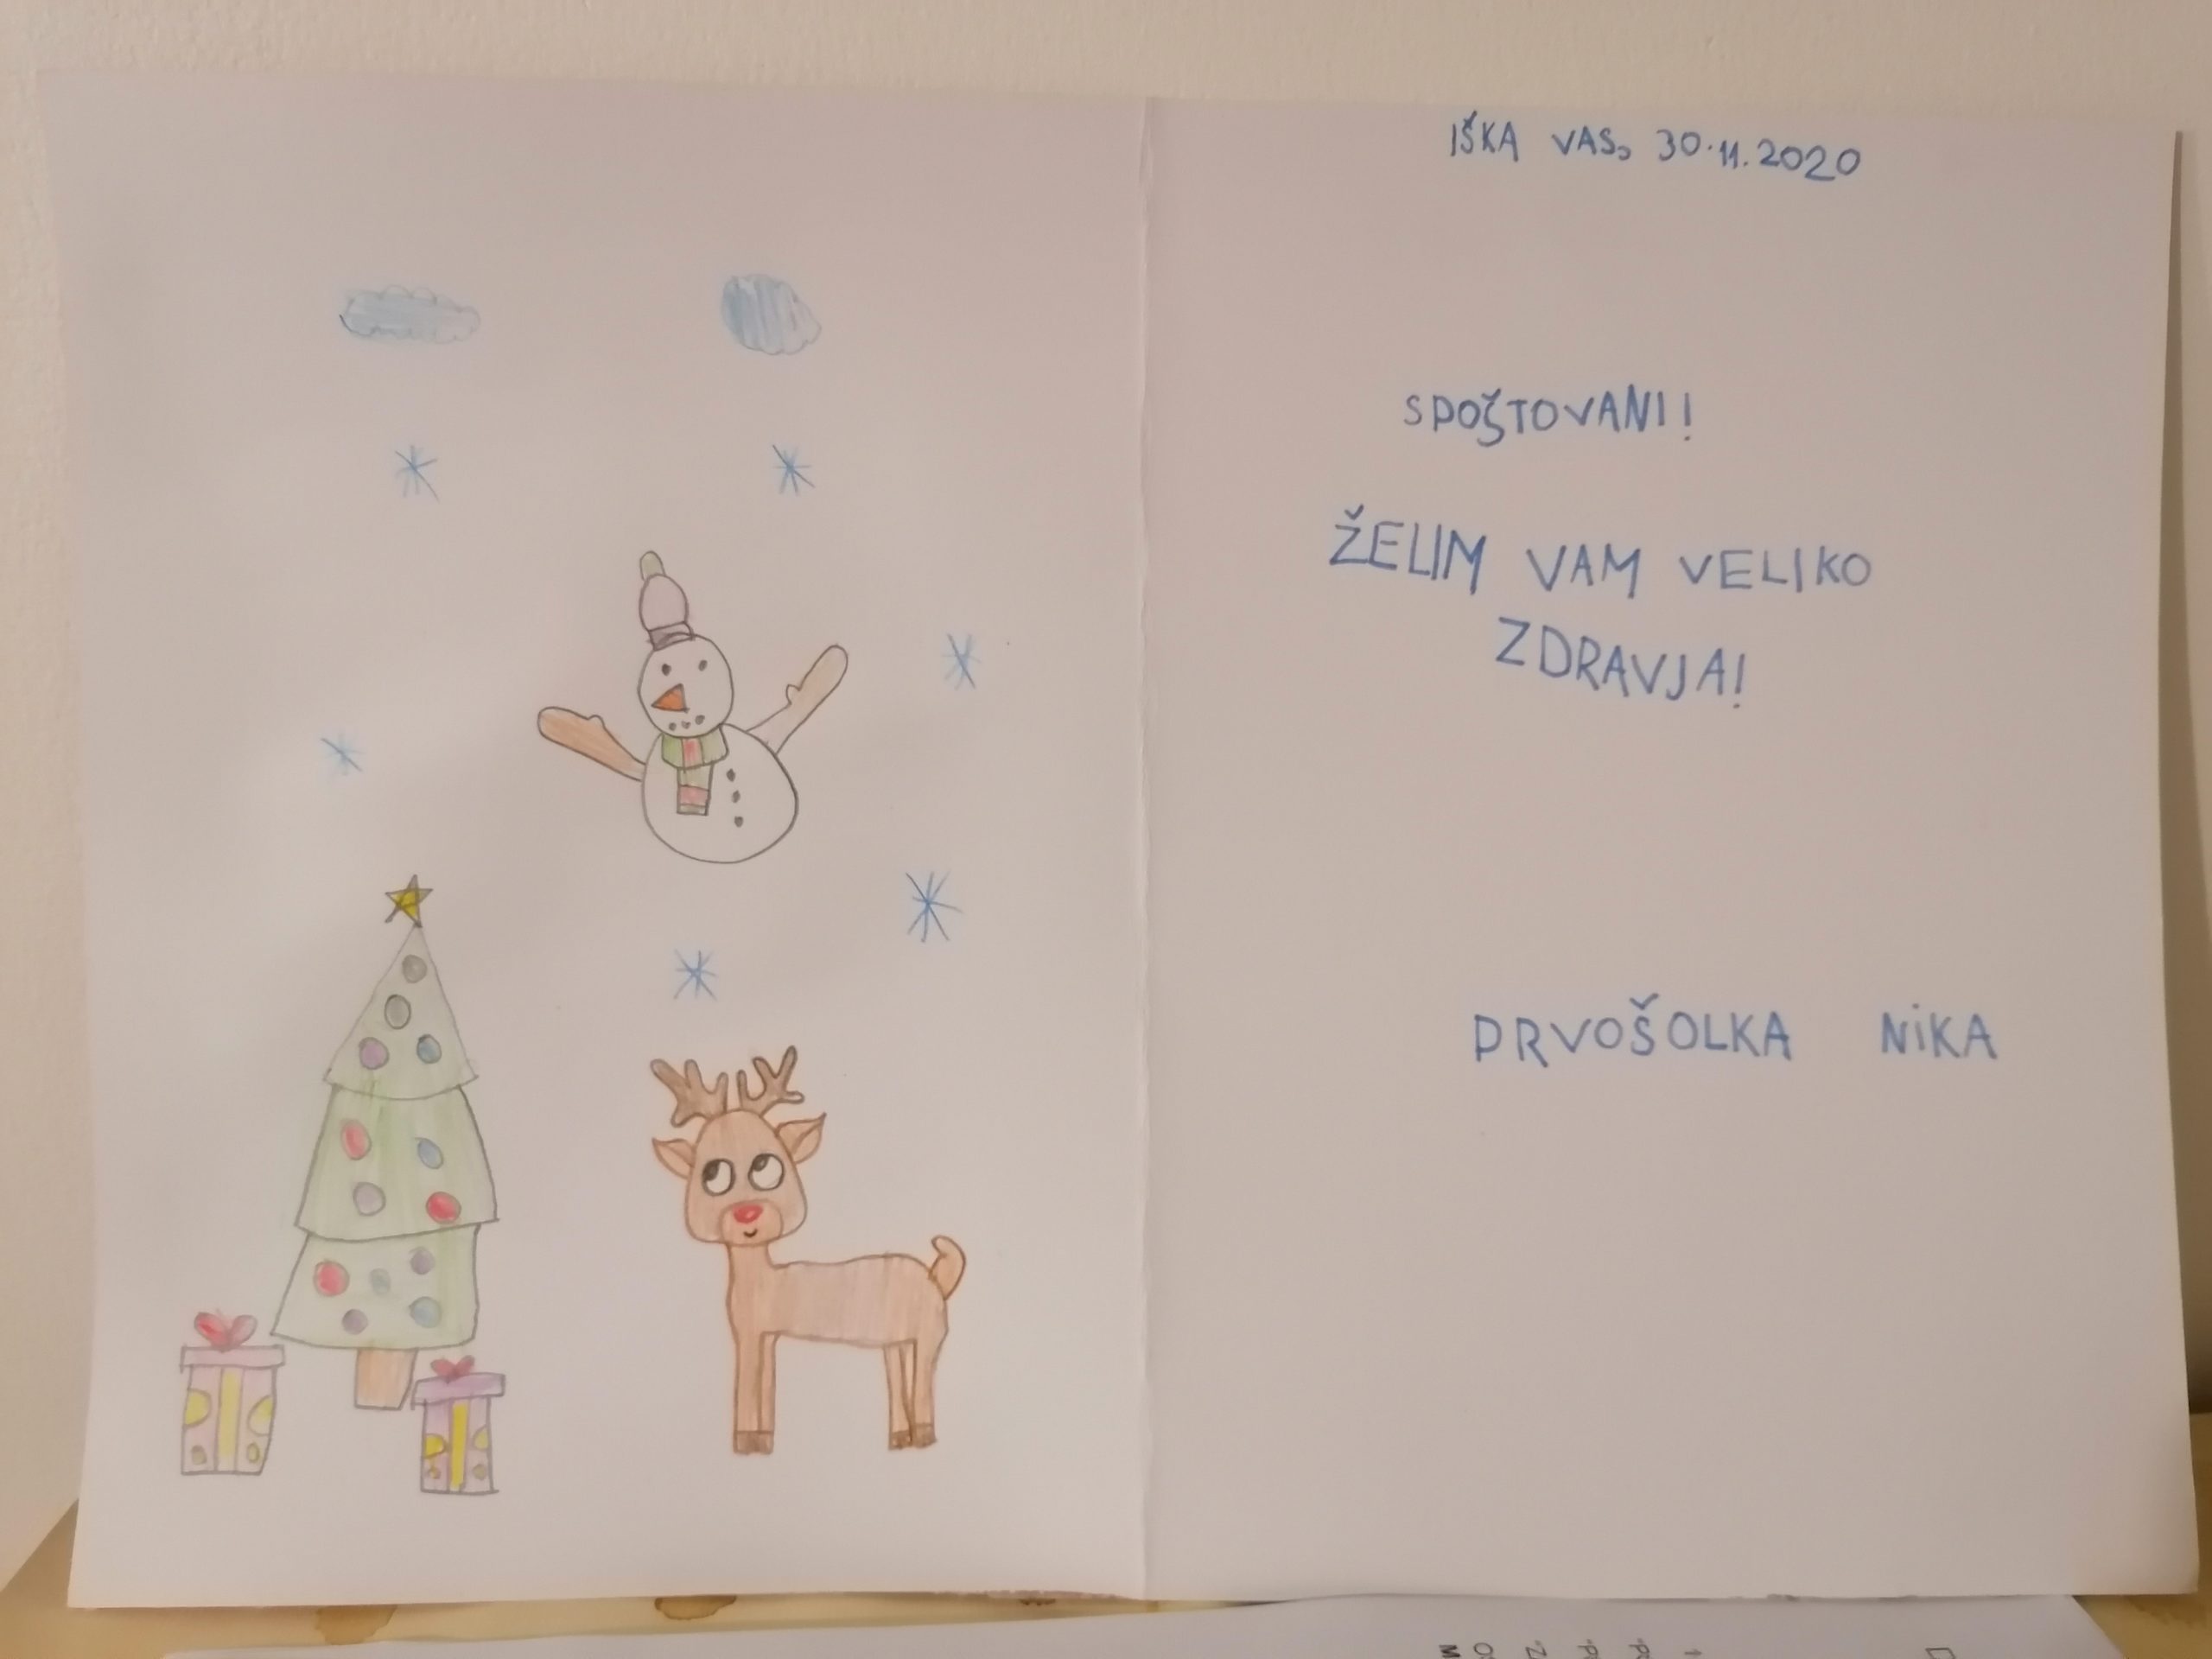 IŠKA VAS, 30.11.2020
SPOŠTOVANI!
ŽELIM VAM VELIKO
ZDRAVJA!
PRVOŠOLKA NiKA